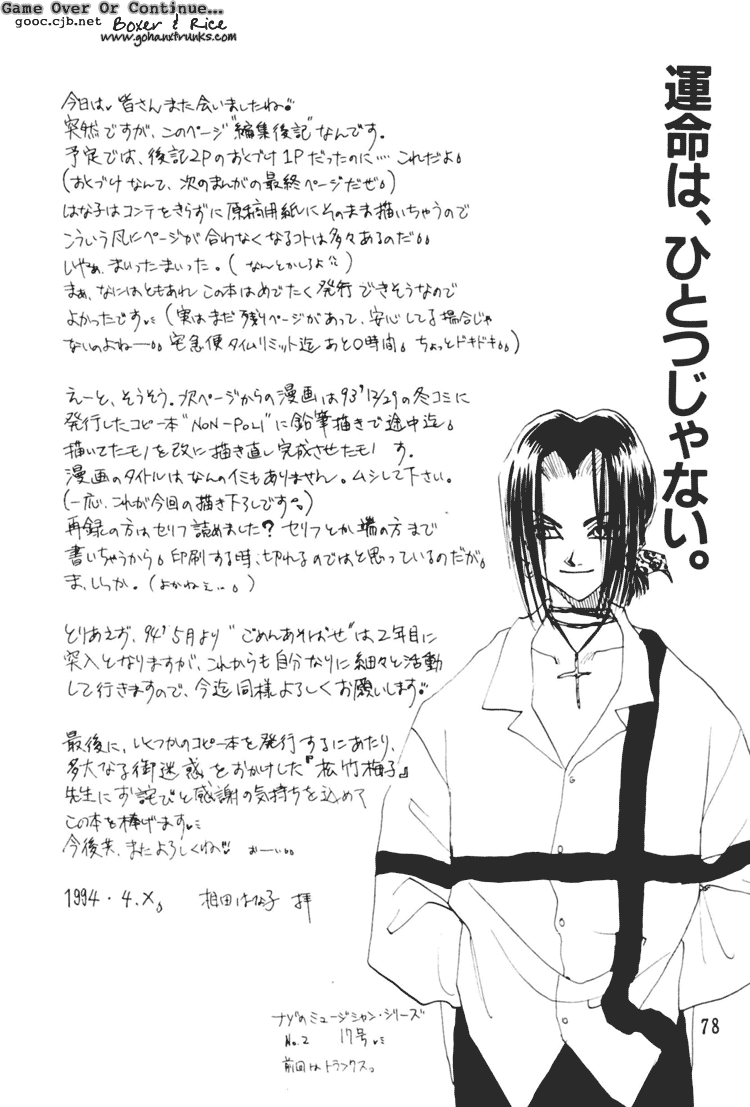 Game Over Or Continue...
gooc.cjb.net
Boxer & Rice
www.gohanxtrunks.com
運命は、ひとつじゃない。
今日は 皆さんまた会いましたね
突然ですが、このページ"編集後記"なんです。
予定では、後記2Pのおくづけ1Pだったのに…これだよ。
(おくづけなんて、次のまんがの最終ページだぜ。)
はな子はコンテをきらずに原稿用紙にそのまま描いちゃうので
こういう風にページが合わなくなるコトは多々あるのだ。。
いやぁ、まいったまいった。(なんとかしろよ)
まぁ、なにはともあれこの本はめでたく発行できそうなので
よかったです。(実はまだ残りページがあって、安心してる場合じゃ
ないのよねー。。宅急便タイムリミット迄あと0時間。ちょっとドキドキ。。)
えーと、そうそう。次ページからの漫画は93'12/29の冬コミに
発行したコピー本"NON-POLI"に鉛筆描きで途中迄。
描いてたモノを改に描き直し完成させたモノ す。
漫画のタイトルはなんのイミもありません。ムシして下さい。
(一応、これが今回の描き下ろしです。)
再録の方はセリフ詰めました?セリフとか端の方まで
書いちゃうから。印刷する時、切れるのではと思っているのだが。
ま、いっか。(よかねぇ…。)
とりあえず、94'5月より"ごめんあそばせ"は2年目に
突入となりますが、これからも自分なりに細々と活動
して行きますので、今迄同様よろしくお願いします
最後に、いくつかのコピー本を発行するにあたり、
多大なる御迷惑をおかけした『松竹梅子』
先生にお詫びと感謝の気持ちを込めて
この本を捧げます
今後共、またよろしくね おーい。。
1994.4.X。 相田はな子 拝
ナゾのミュージシャン・シリーズ
No.2 17号
前回はトランクス。
78